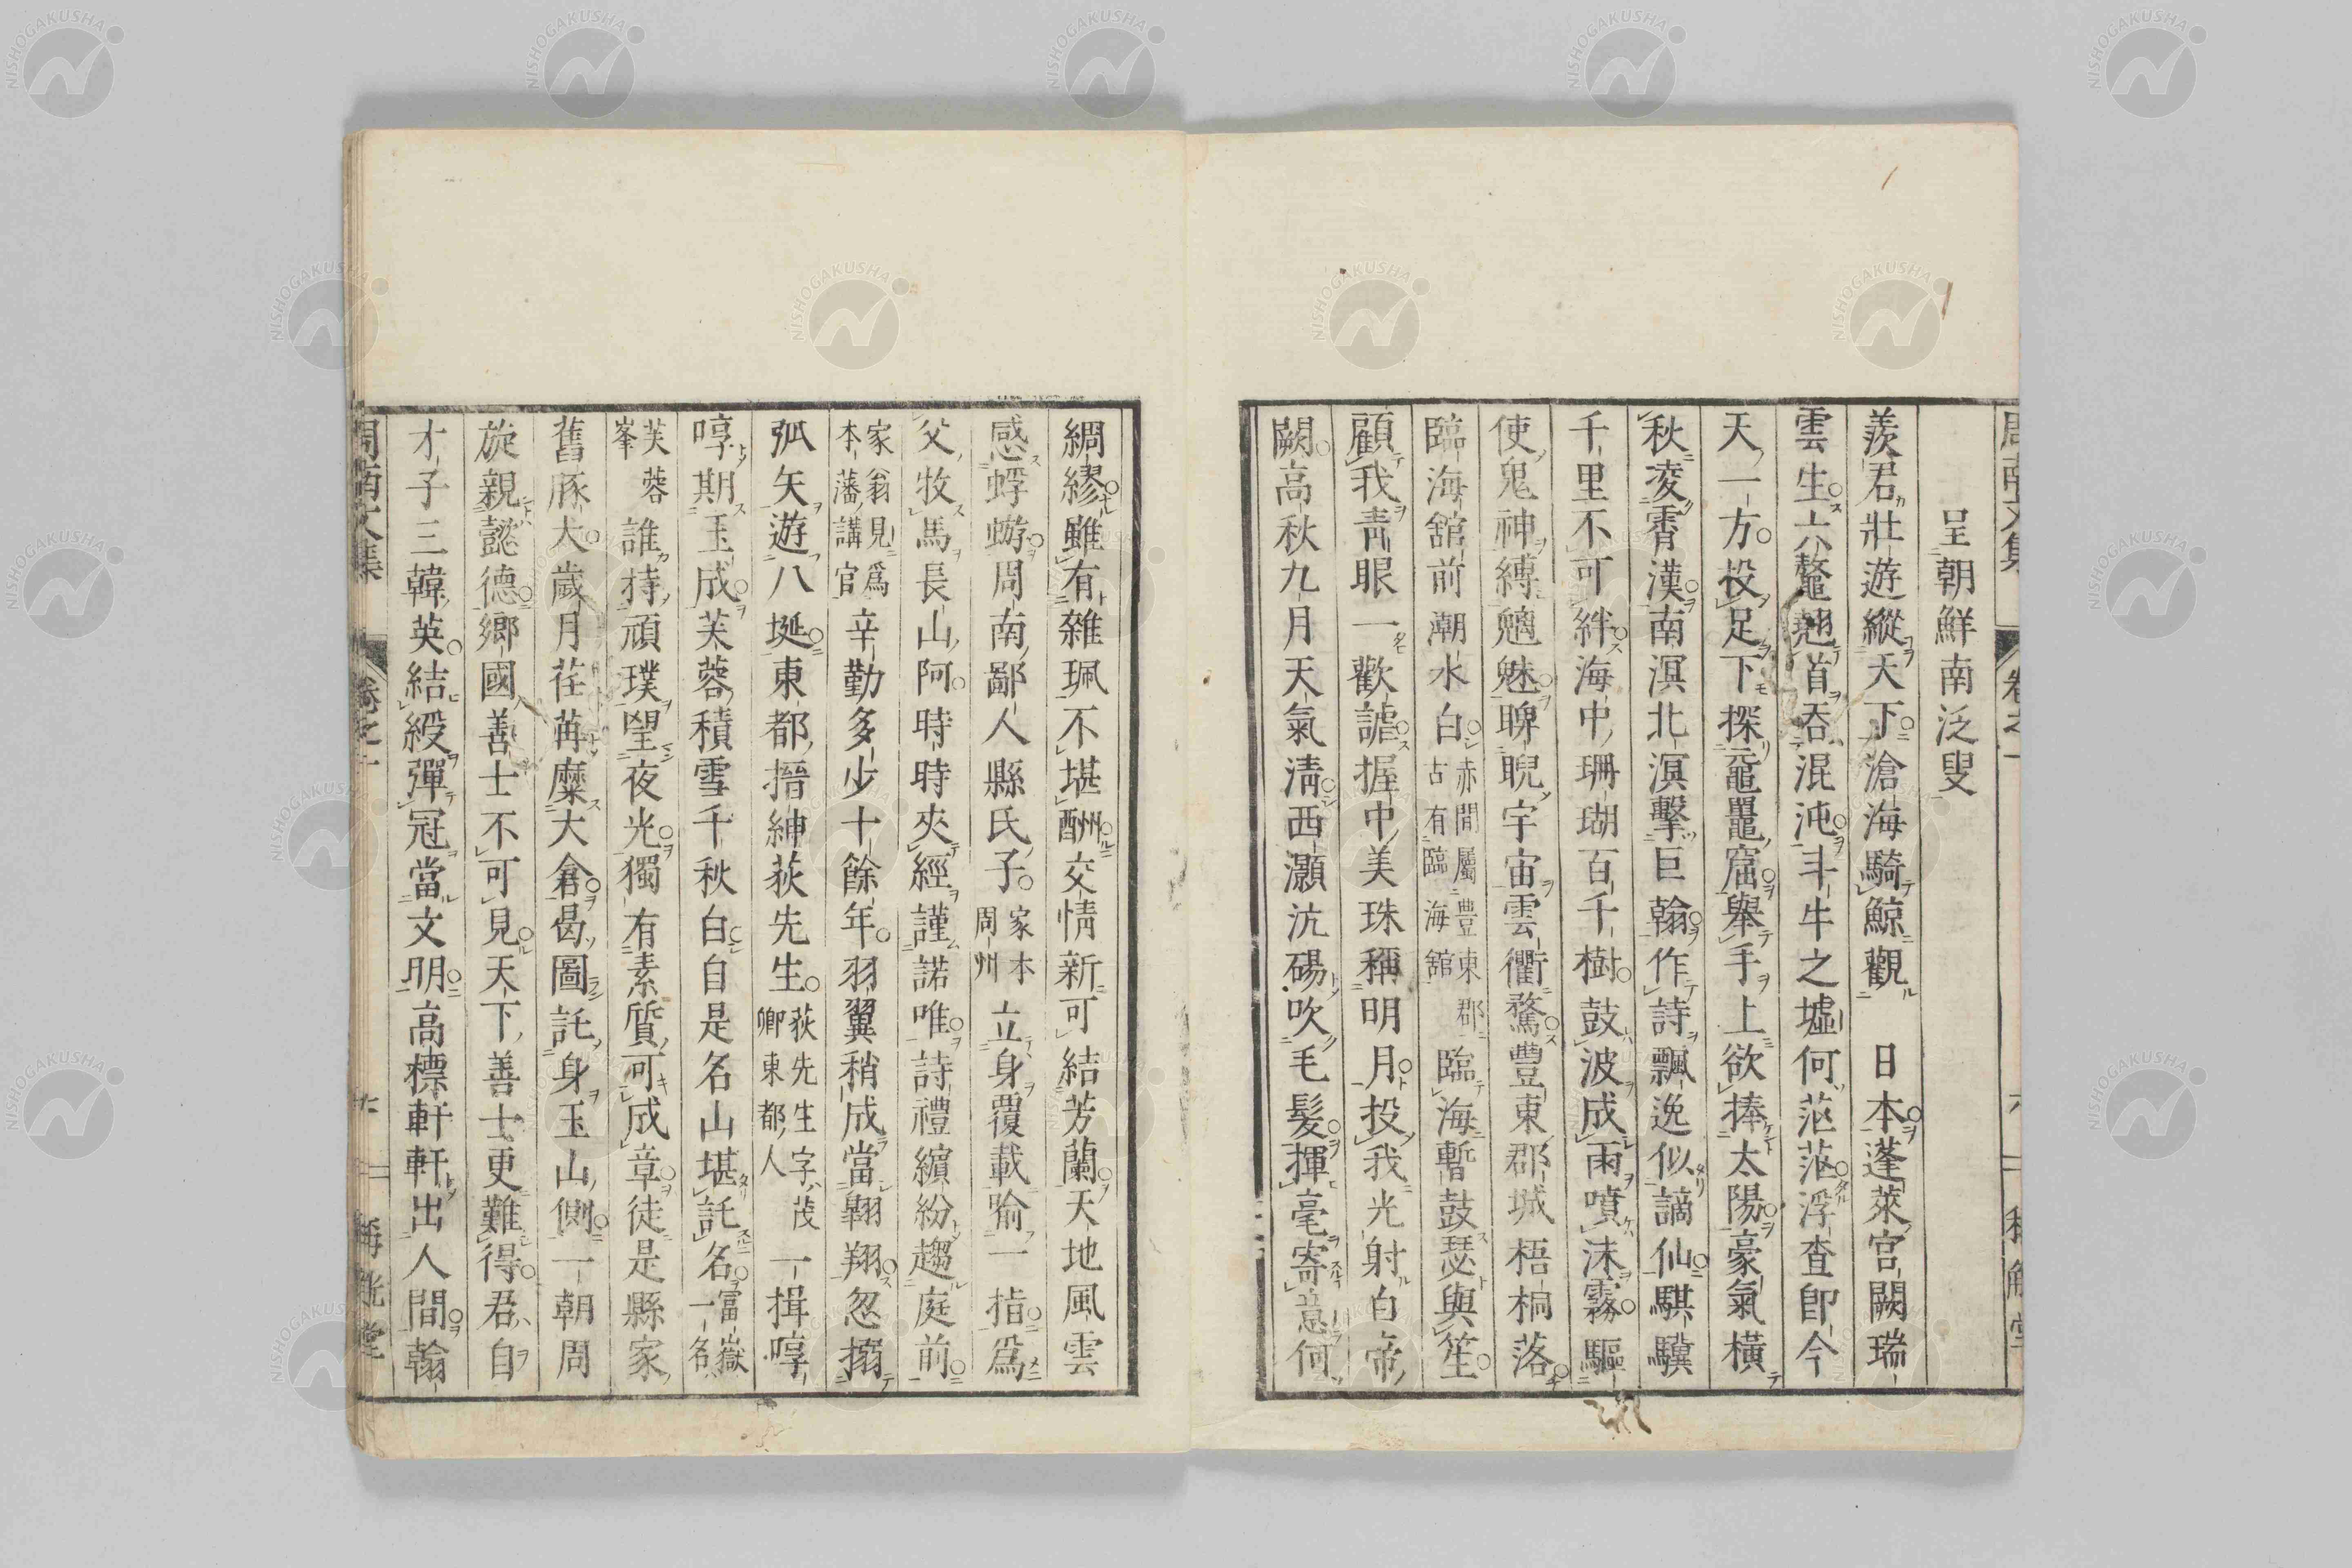 呈朝鮮南泛叟
羨君壯遊縱天下滄海騎鯨觀　日本蓬萊宮闕瑞
雲生六鼇翹首呑混沌斗牛之墟何茫茫浮査卽今
天一方投足下探黿鼉窟舉手上欲捧太陽豪氣橫
秋凌霄漢南溟北溟擊巨翰作詩飄逸似謫仙騏驥
千里不可絆海中珊瑚百千樹鼓波成雨噴沫霧驅
使鬼神縛魑魅睥睨宇宙雲衢騖豐東郡城梧桐落
臨海舘前潮水白赤間屬豐東郡古有臨海舘臨海暫鼓瑟與笙
顧我靑眼一歡謔握中美珠稱明月投我光射白帝
闕高秋九月天氣淸西灝沆碭吹毛髮揮毫寄意何
綢繆雖有雜珮不堪酬交情新可結芳蘭天地風雲
感蜉蝣周南鄙人縣氏子家本周州立身覆載喩一指爲
父牧馬長山阿時時夾經謹諾唯詩禮繽紛趨庭前
家翁見爲本藩講官辛勤多少十餘年羽翼稍成當翱翔忽搦
弧矢遊八埏東都搢紳荻先生荻先生字茂卿東都人一揖啍
啍期玉成芙蓉積雪千秋白自是名山堪託名富嶽一名
芙蓉峯誰持頑璞望夜光獨有素質可成章徒是縣家
舊豚犬歲月荏苒糜大倉曷圖託身玉山側一朝周
旋親懿德鄉國善士不可見天下善士更難得君自
才子三韓英結綬彈冠當文明高標軒軒出人間翰
周南文集
卷之一